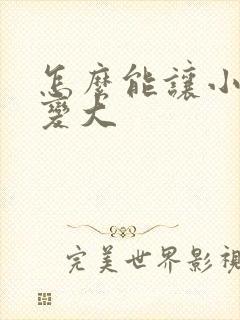 怎麼能讓小
變大
完美世界影視